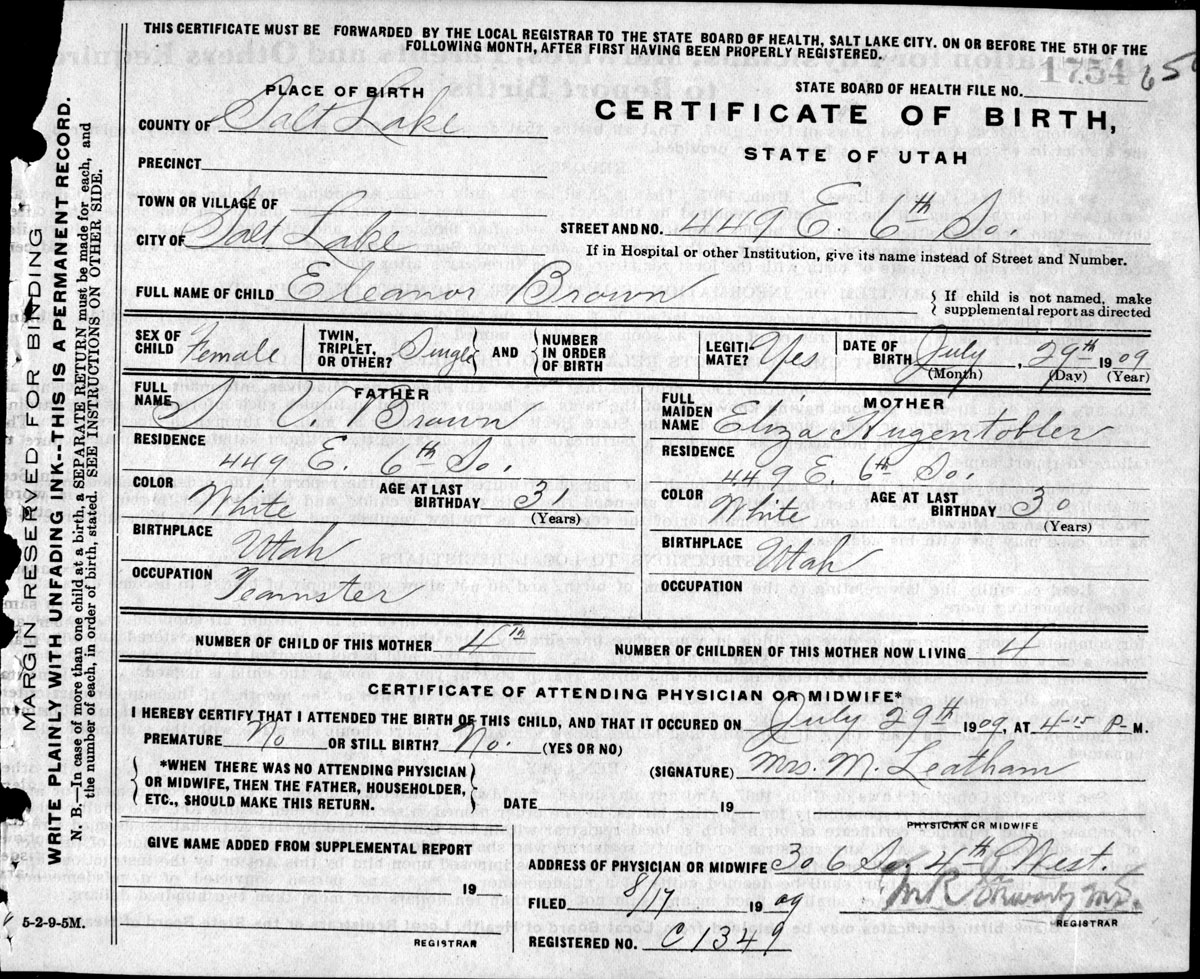 THIS CERTIFICATE MUST BE FORWARDED BY THE LOCAL REGISTRAR TO THE STATE BOARD OF HEALTH, SALT LAKE CITY. ON OR BEFORE THE 5TH OF THE
FOLLOWING MONTH, AFTER FIRST HAVING BEEN PROPERLY REGISTERED.
1754
STATE BOARD OF HEALTH FILE NO.
PLACE OF BIRTH
COUNTY OF Salt Lake
CERTIFICATE OF BIRTH,
STATE OF UTAH
PRECINCT
TOWN OR VILLAGE OF
CITY OF Salt Lake
STREET AND NO. 449 E. 6th So.
If in Hospital or other Institution, give its name instead of Street and Number.
FULL NAME OF CHILD Eleanor Brown
If child is not named, make
supplemental report as directed
SEX OF CHILD Female
TWIN, TRIPLET, OR OTHER? Single AND NUMBER IN ORDER OF BIRTH
LEGITIMATE? Yes
DATE OF BIRTH July, 29th 1909
(Month) (Day) (Year)
FATHER
FULL NAME C. A. Brown
RESIDENCE
449 E. 6th So.
COLOR White AGE AT LAST BIRTHDAY 31
(Years)
BIRTHPLACE
Utah
OCCUPATION
Teamster
MOTHER
FULL MAIDEN NAME Eliza Hugentobler
RESIDENCE
449 E. 6th So.
COLOR White AGE AT LAST BIRTHDAY 30
(Years)
BIRTHPLACE Utah
OCCUPATION
NUMBER OF CHILD OF THIS MOTHER 4th NUMBER OF CHILDREN OF THIS MOTHER NOW LIVING 4
CERTIFICATE OF ATTENDING PHYSICIAN OR MIDWIFE*
I HEREBY CERTIFY THAT I ATTENDED THE BIRTH OF THIS CHILD, AND THAT IT OCCURED ON July 29th 1909, AT 4-15 P-M.
PREMATURE No OR STILL BIRTH? No. (YES OR NO)
*WHEN THERE WAS NO ATTENDING PHYSICIAN
OR MIDWIFE, THEN THE FATHER, HOUSEHOLDER,
ETC., SHOULD MAKE THIS RETURN.
(SIGNATURE) Mrs. M. Leatham
DATE 19
PHYSICIAN OR MIDWIFE
GIVE NAME ADDED FROM SUPPLEMENTAL REPORT
19
REGISTRAR
ADDRESS OF PHYSICIAN OR MIDWIFE 306 So. 4th West.
FILED 8/4 1909
REGISTRAR
REGISTERED NO. C1349
5-2-9-5M.
MARGIN RESERVED FOR BINDING
WRITE PLAINLY WITH UNFADING INK--THIS IS A PERMANENT RECORD.
N. B.—In case of more than one child at a birth, a SEPARATE RETURN must be made for each, and
the number of each, in order of birth, stated. SEE INSTRUCTIONS ON OTHER SIDE.